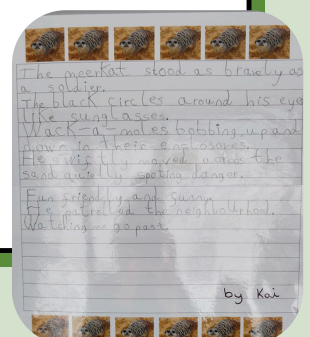 The meerkat stood as bravely as
a soldier.
The black circles around his eyes
like sunglasses.
Wack-a-moles bobbing up and
down in their enclosures.
He swiftly moved across the
sand quietly spoting danger.
Fun friendly and funny.
He patrolled the neighbourhood.
Watching me go past.
by Kai